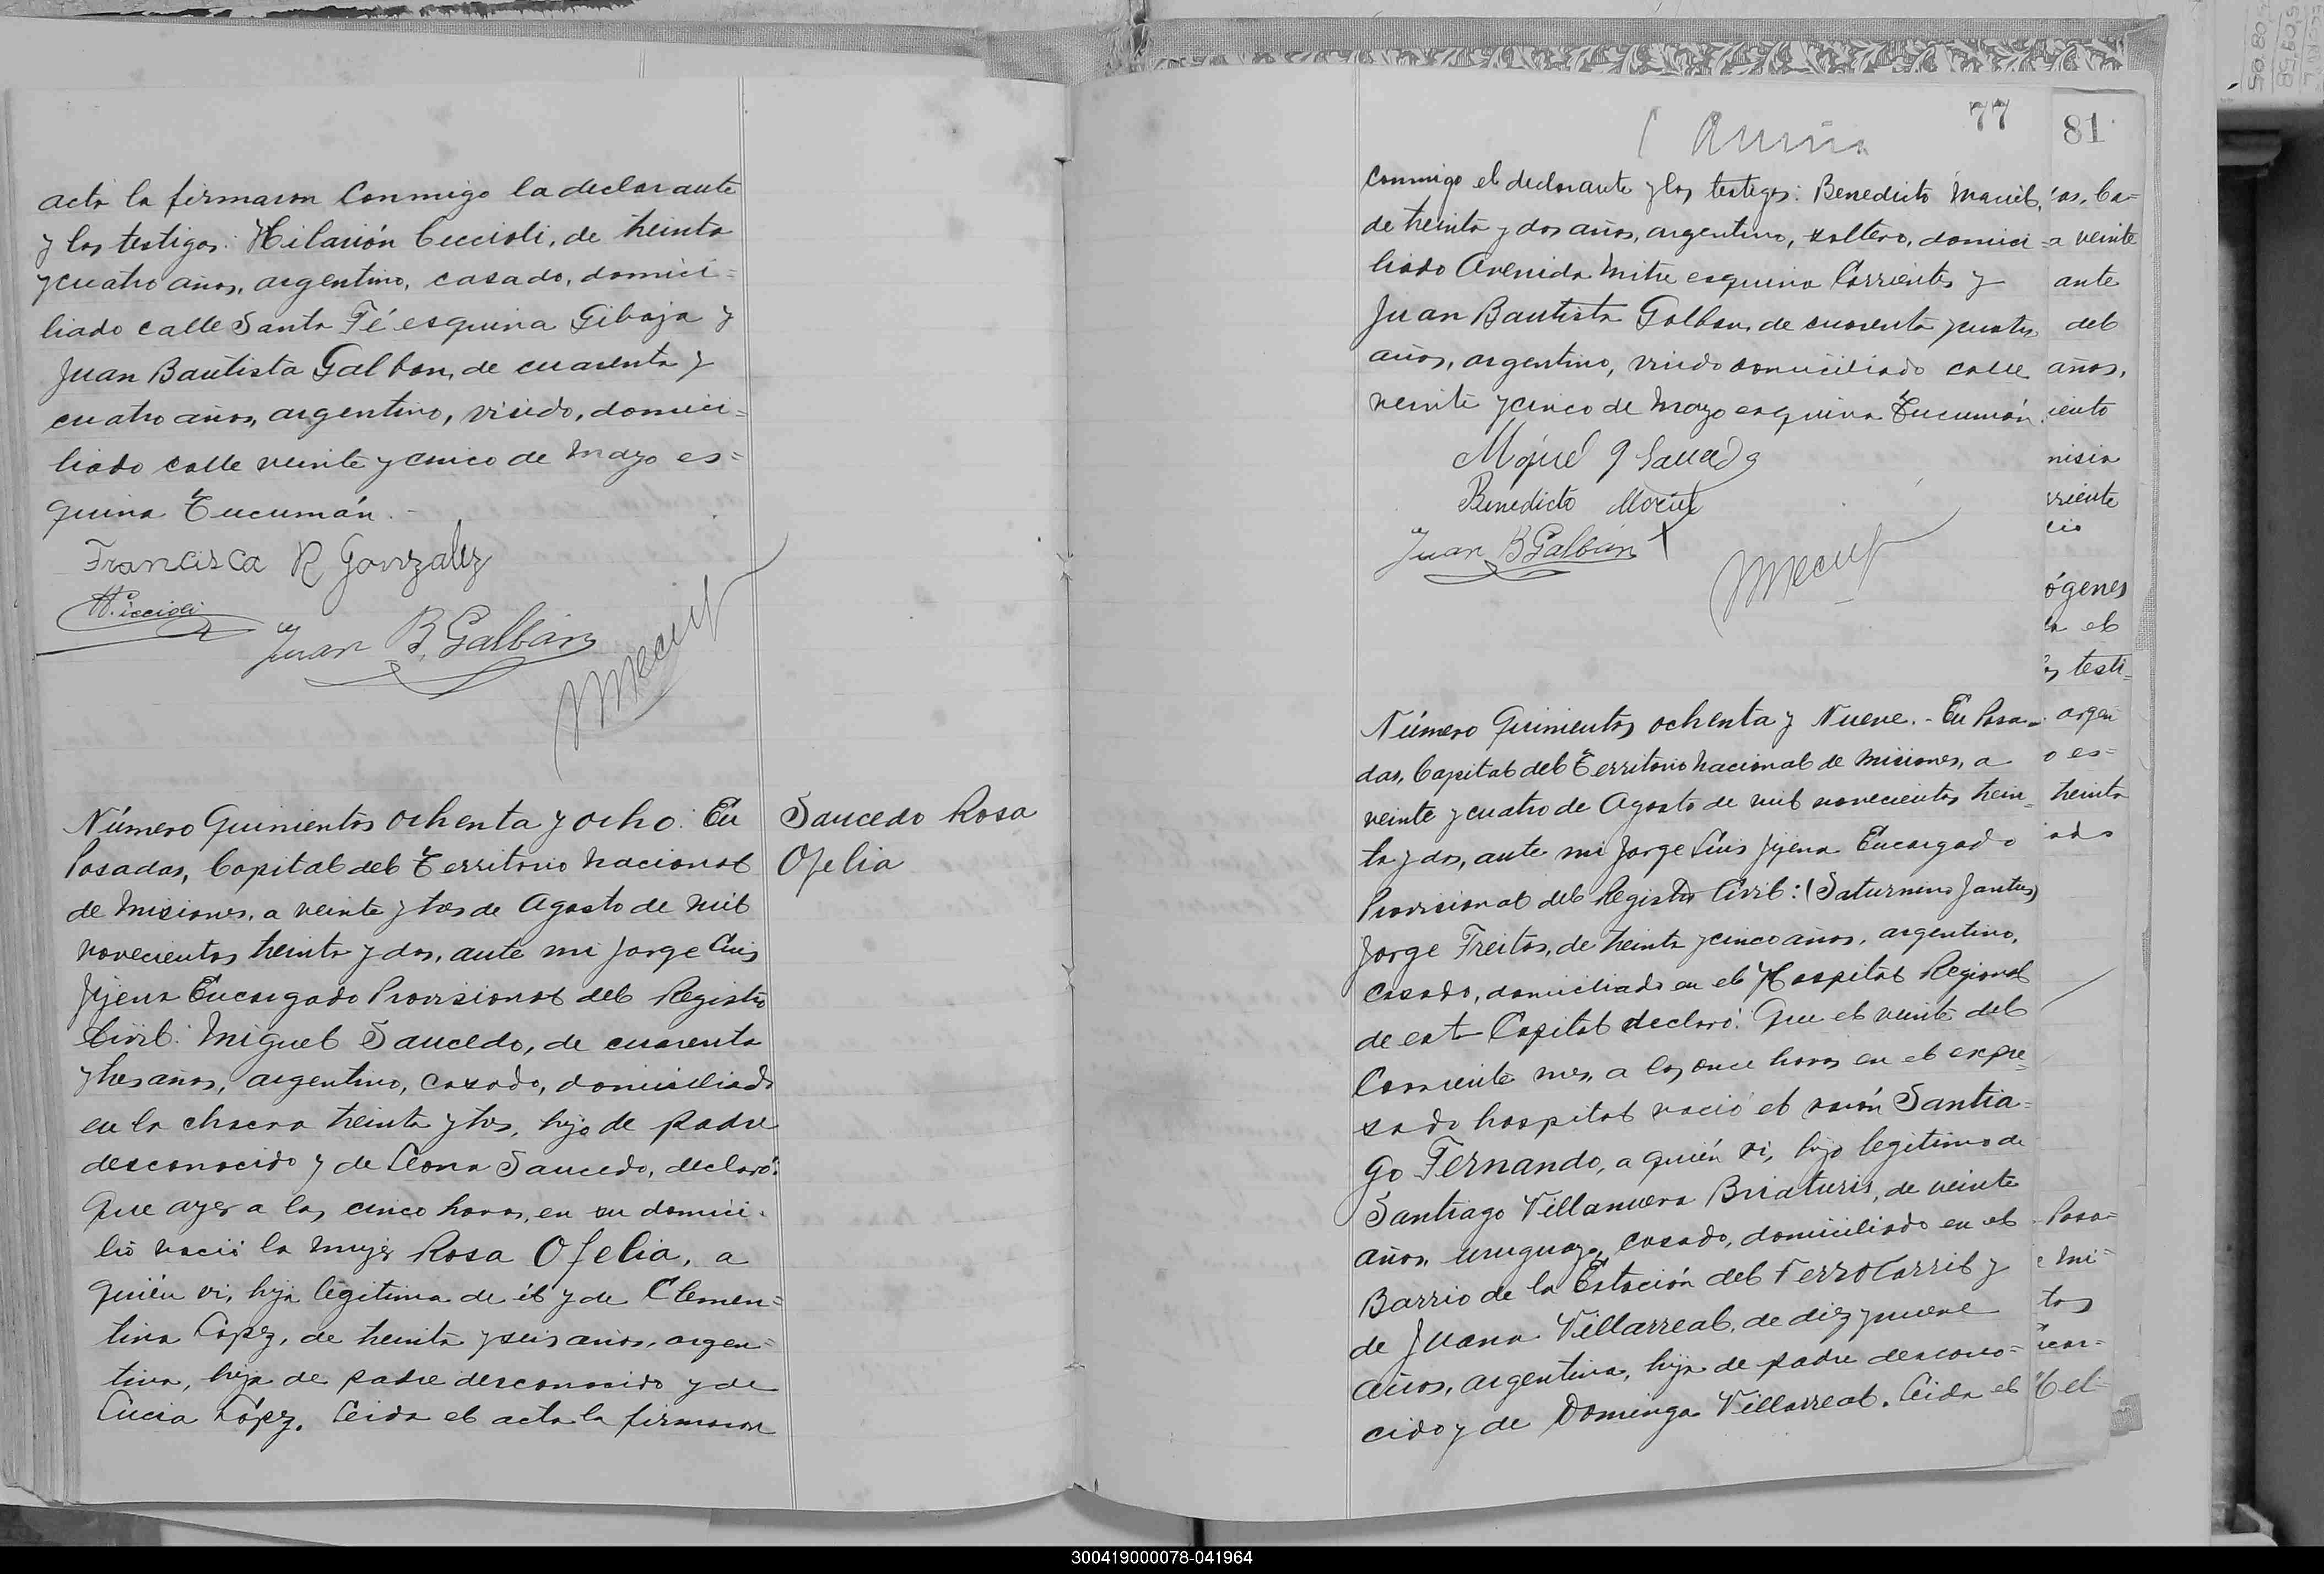 acta la firmaron conmigo la declarante
y los testigos: Hilarión Ciccioli, de treinta
y cuatro años, argentino, casado, domici=
liado calle Santa Fé esquina Gibaja y
Juan Bautista Galban, de cuarenta y
cuatro años, argentino, viudo, domici=
liado calle veinte y cinco de Mayo es=
quina Tucumán.-
Francisca R Gonzalez
H. Ciccioli
Juan B. Galbán
Número Quinientos ochenta y ocho: En
Posadas, Capital del Territorio Nacional
de Misiones, a veinte y tres de Agosto de mil
novecientos treinta y dos, ante mi Jorge Luis
Jijena Encargado Provisional del Registro
Civil: Miguel Saucedo, de cuarenta
y tres años, argentino, casado, domiciliado
en la chacra treinta y tres, hijo de padre
desconocido y de Leona Saucedo, declaró:
Que ayer a las cinco horas, en su domici-
lio nació la mujer Rosa Ofelia, a
quién vi, hija legitima de él y de Clemen=
tina Lopez, de treinta y seis años, argen=
tina, hija de padre desconocido y de
Lucia López. Leida el acta la firmaron
Saucedo Rosa
Ofelia
77
conmigo el declarante y los testigos: Benedicto Maciel,
de treinta y dos años, argentino, soltero, domici
liado Avenida Mitre esquina Corrientes y
Juan Bautista Galban, de cuarenta y cuatro
años, argentino, viudo domiciliado calle
veinte y cinco de Mayo esquina Tucumán.
Miguel J Saucedo
Benedicto Maciel
Juan B Galbán
Número Quinientos ochenta y Nueve.- En Posa-
das, Capital del Territorio Nacional de Misiones, a
veinte y cuatro de Agosto de mil novecientos trein=
ta y dos, ante mi Jorge Luis Jijena Encargado
Provisional del Registro Civil: (Saturnino Jantus)
Jorge Freitas, de treinta y cinco años, argentino,
casado, domiciliado en el Hospital Regional
de esta Capital declaró: Que el veinte del
Corriente mes, a las once horas en el expre=
sado hospital nació el varón Santia=
go Fernando, a quién vi, hijo legitimo de
Santiago Villanueva Briaturis, de veinte
años, uruguayo, casado, domiciliado en el
Barrio de la Estación del Ferrocarril y
de Juana Villarreal, de diez y nueve
años, argentina, hija de padre descono=
cido y de Dominga Villarreal. Leida el
81
as, Ca=
a veinte
ante
del
años,
iento
nisia
rriente
cio
ógenes
la el
os testi=
argen
o es=
treinta
ado
Posa=
e mi=
tos